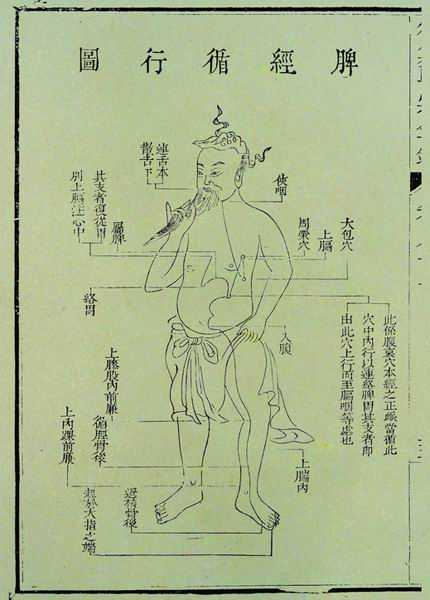 脾經循行圖
連舌本
散舌下
挾咽
大包穴
上膈
周榮穴
屬脾
其支者復從胃
別上膈注心中
絡胃
此係腹哀穴本經之正緣當循此
穴中內行以連絡脾胃其支者即
由此穴上行而至膈咽等處也
入腹
上膝股內前廉
循脛骨後
上內踝前廉
上腨內
過核骨後
起於大指之端